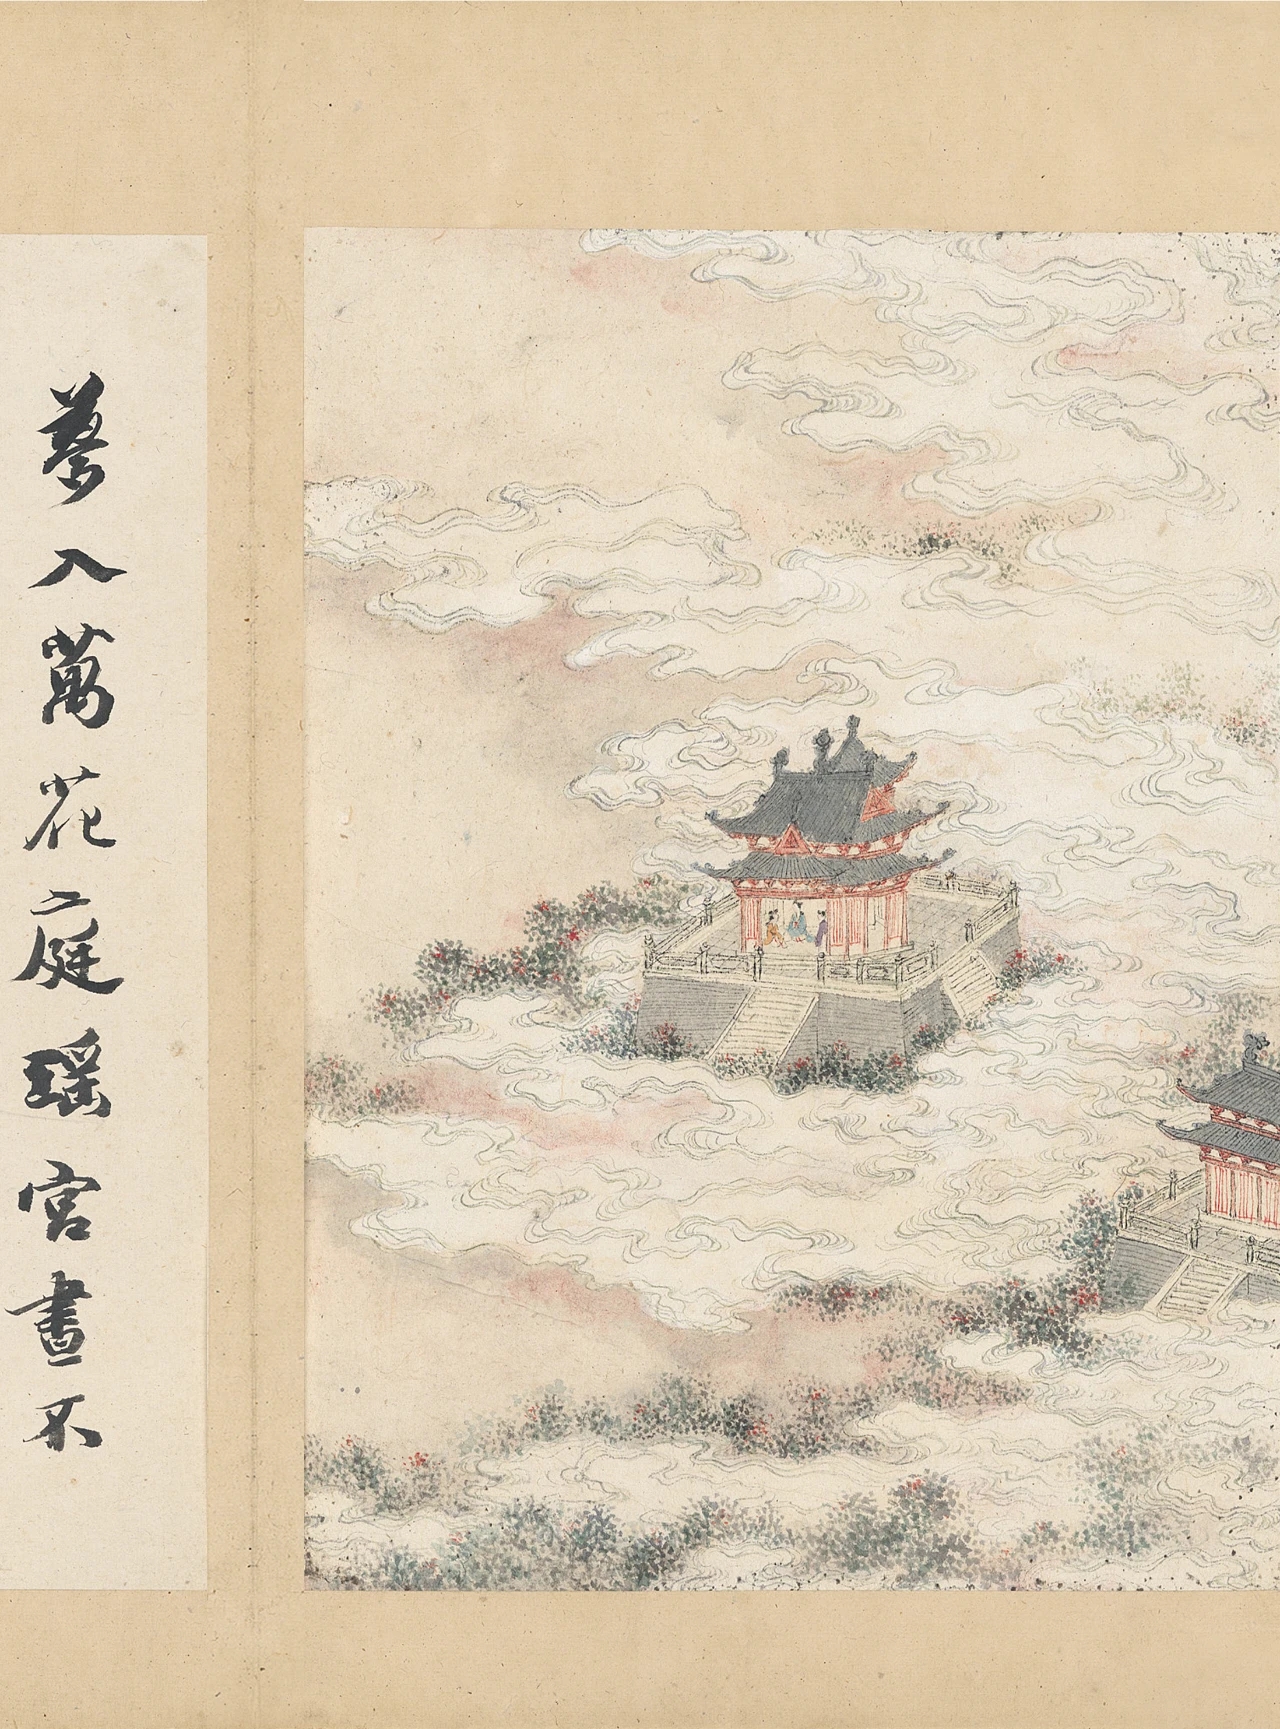 夢入萬花庭瑤宮晝不